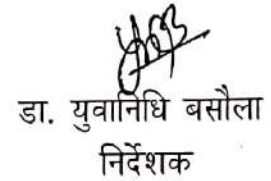 डा. युवानिधि बसौला
निर्देशक